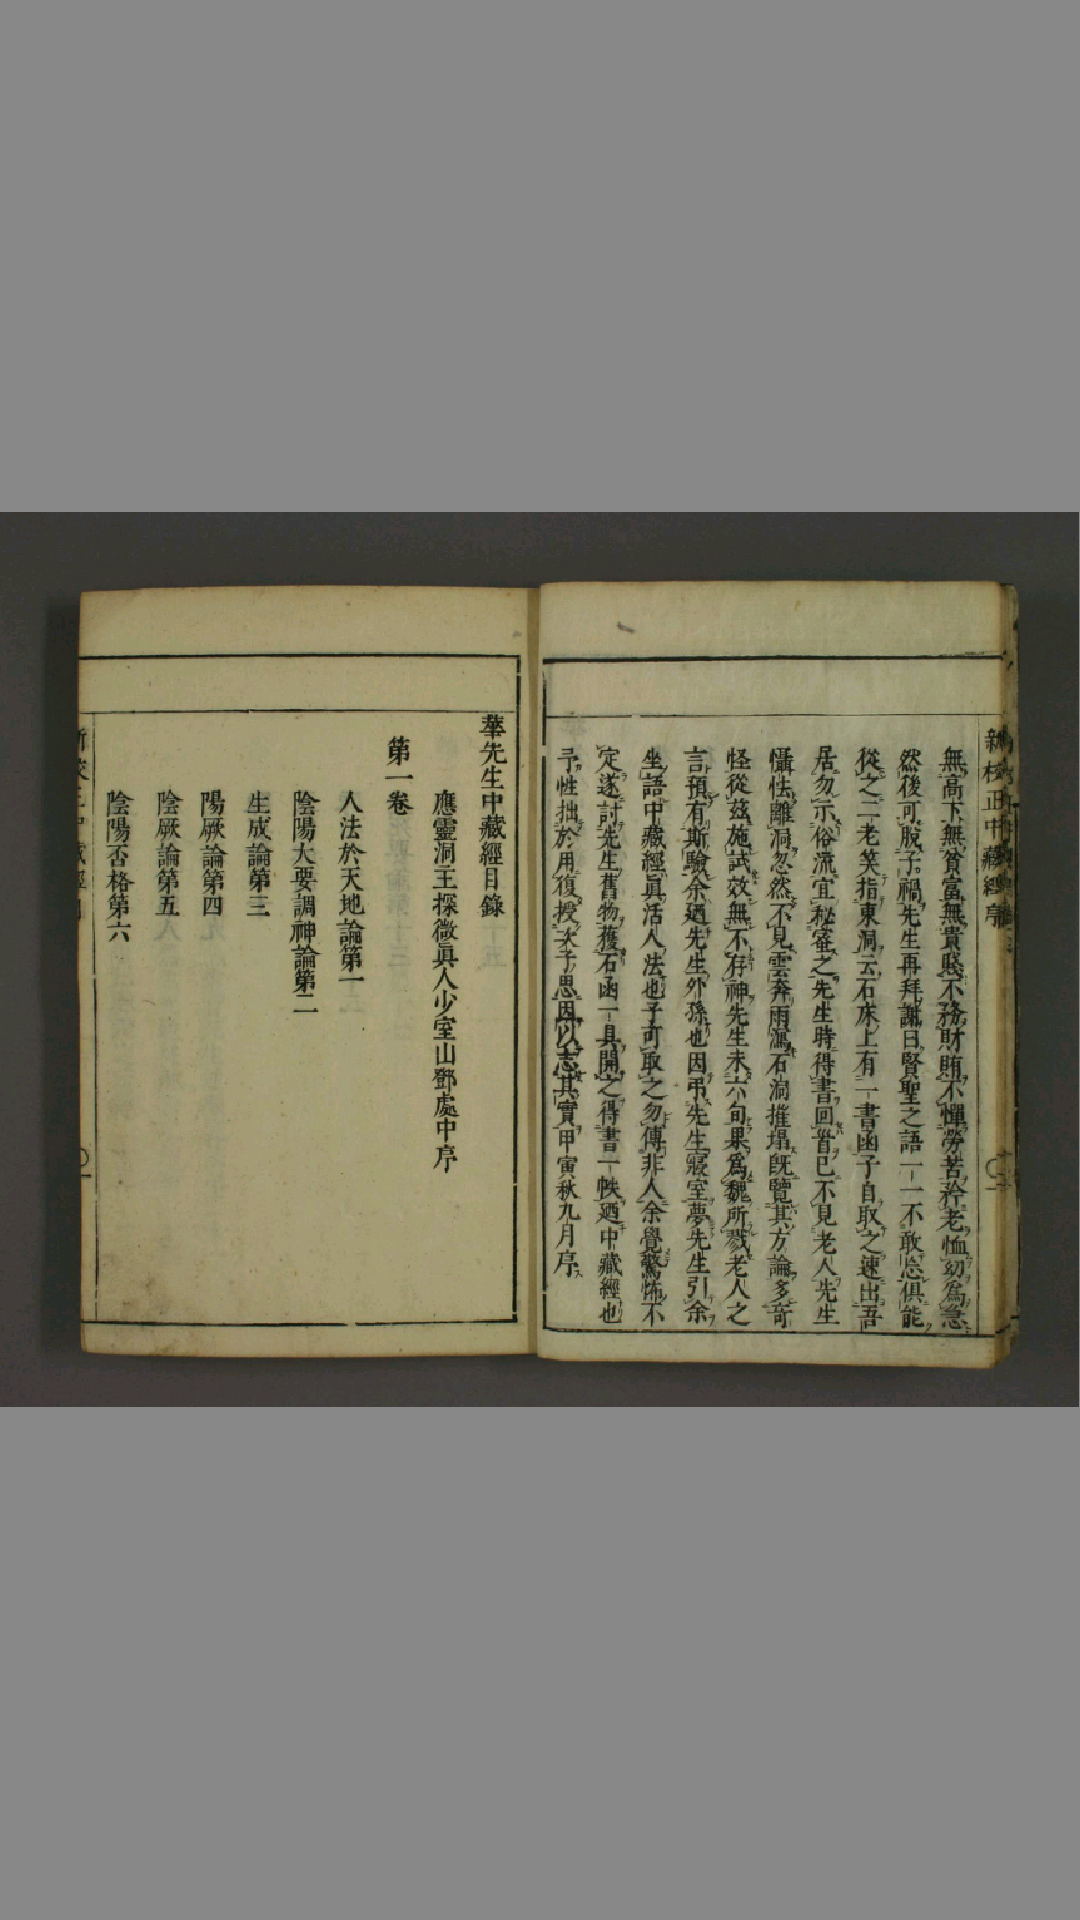 新校正中藏經序
無高下無貧富無貴賤不務財賄不憚勞苦矜老恤幼爲急
然後可脫子禍先生再拜謝曰賢聖之語一一不敢忘俱能
從之二老笑指東洞云石床上有一書函子自取之速出吾
居勿示俗流宜秘密之先生時得書回首已不見老人先生
懾怯離洞忽然不見雲奔雨瀉石洞摧塌既覽其方論多奇
怪從茲施試效無不存神先生未六旬果爲魏所戮老人之
言預有斯驗余廼先生外孫也因弔先生寢室夢先生引余
坐語中藏經眞活人法也子可取之勿傳非人余覺驚怖不
定遂討先生舊物獲石函一具開之得書一帙廼中藏經也
予性拙於用復授次子思因以志其實甲寅秋九月序
華先生中藏經目錄
應靈洞主探微眞人少室山鄧處中序
第一卷
人法於天地論第一
陰陽大要調神論第二
生成論第三
陽厥論第四
陰厥論第五
陰陽否格第六